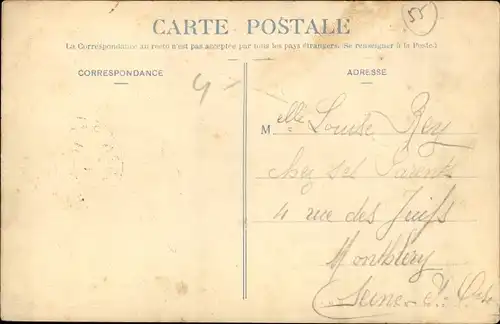 CARTE POSTALE
55
La Correspondance au recto n'est pas acceptée par tous les pays étrangers. (Se renseigner à la Poste)
CORRESPONDANCE
ADRESSE
Melle Louise Rey
chez ses Parents
4 rue des Juifs
Montlhéry
Seine & Oise